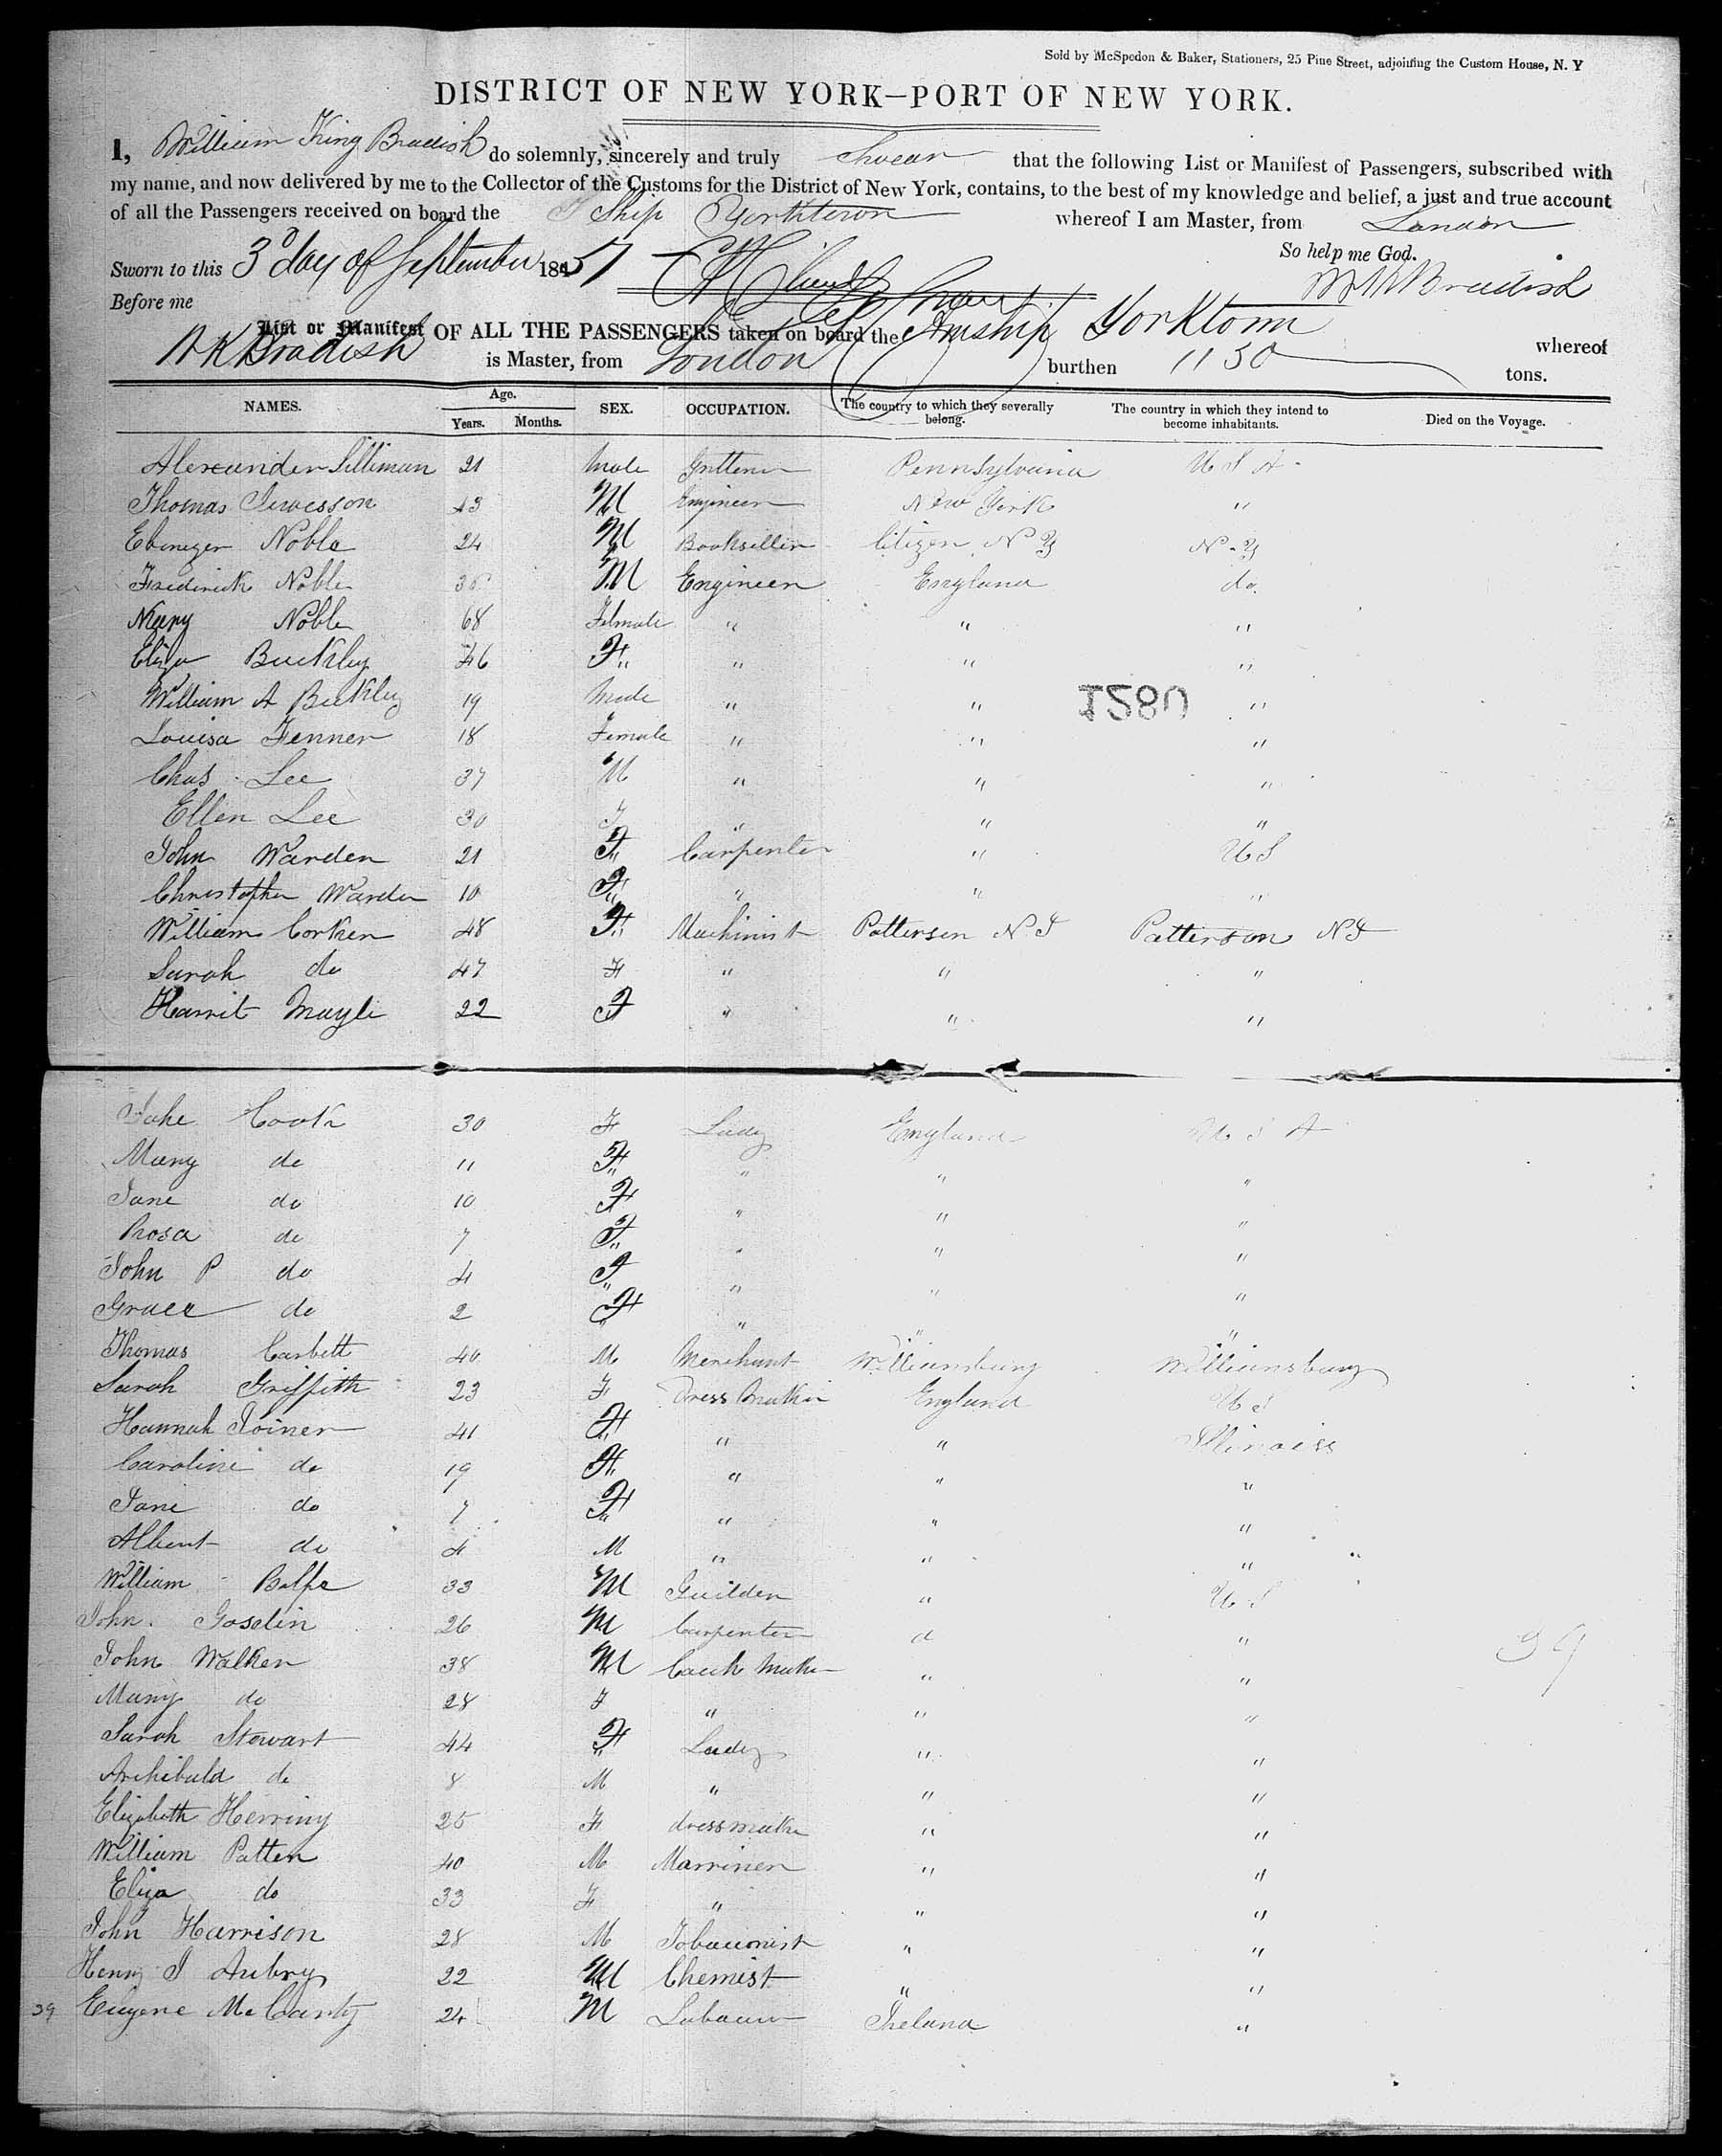 Sold by McSpedon & Baker, Stationers, 25 Pine Street, adjoining the Custom House, N. Y
DISTRICT OF NEW YORK—PORT OF NEW YORK.
I, William King Bradish do solemnly, sincerely and truly swear that the following List or Manifest of Passengers, subscribed with
my name, and now delivered by me to the Collector of the Customs for the District of New York, contains, to the best of my knowledge and belief, a just and true account
of all the Passengers received on board the Ship Yorktown whereof I am Master, from London
So help me God.
Sworn to this 3d day of September 1851
W K Bradish
Before me
List or Manifest OF ALL THE PASSENGERS taken on board the Ship Yorktown whereof
W K Bradish is Master, from London burthen 1150 tons.
NAMES. Age. Years. Months. SEX. OCCUPATION. The country to which they severally belong. The country in which they intend to become inhabitants. Died on the Voyage.
Alexander Silliman 21 Male Pennsylvania U S A
Thomas 43 M Engineer New York "
Ebenezer Noble 24 M Bookseller Citizen N Y N. Y
Frederick Noble M Engineer England do.
Mary Noble 68 Female " " "
Eliza Buckley 46 F " " "
William A Buckley 19 Male " " "
1280
Louisa Fenner 18 Female " " "
Chas Lee 37 M " " "
Ellen Lee 30 F " " "
John Warden 21 F Carpenter " U S
Christopher Warden 10 F " " "
William Corken 48 F Machinist Patterson N J Patterson N J
Sarah do 47 F " " "
Harrit Mayle 22 F " " "
Cook 30 F Lady England U S A
Mary do 11 F " " "
Jane do 10 F " " "
Rosa do 7 F " " "
John P do 4 F " " "
Grace do 2 F " " "
Thomas Carbett 40 M Merchant Williamsburg Williamsburg
Sarah Griffith 23 F Dress Maker England U S
Hannah Joiner 41 F " " Illinoiss
Caroline do 19 F " " "
Jane do 7 F " " "
Albert do 4 M " " "
William Balfe 33 M Guilder " U S
John Goselin 26 M Carpenter " "
John Walker 38 M Coach Maker " "
39
Mary do 28 F " " "
Sarah Stewart 44 F Lady " "
Archibald do 8 M " " "
Elizabeth Herring 25 F dressmaker " "
William Patten 40 M Marriner " "
Eliza do 33 F " " "
John Harrison 28 M Tobacconist " "
Henry J Aubry 22 M Chemist " "
39 Eugene McCarty 24 M Labourer Ireland "